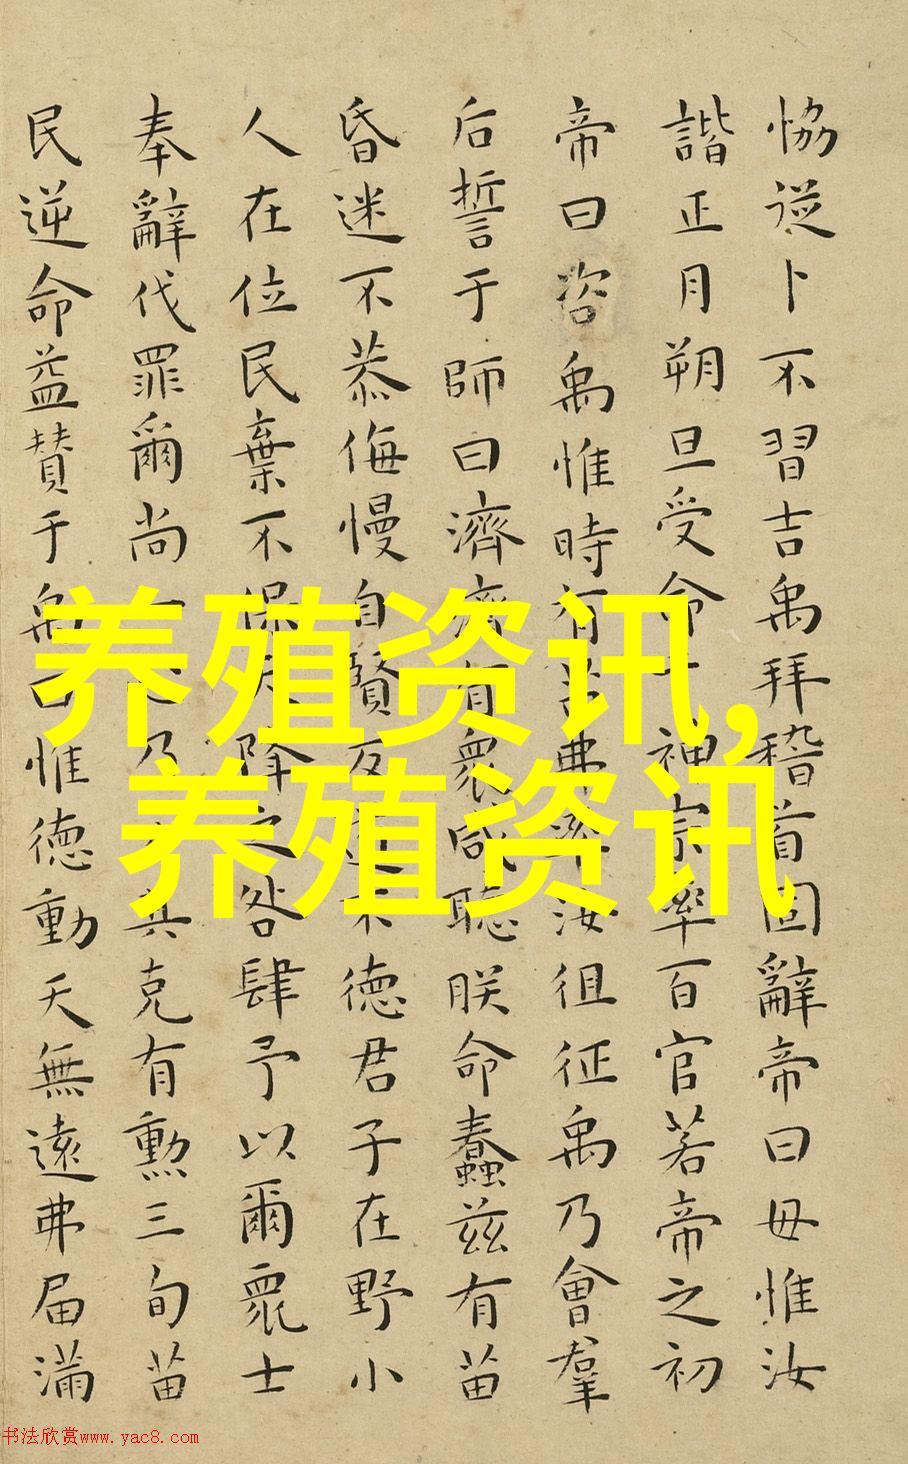 恊從卜不習吉禹拜稽首固辭帝曰毋惟汝
諧正月朔旦受命于神宗率百官若帝之初
帝曰咨禹惟時有苗弗率汝徂征禹乃會羣
后誓于師曰濟濟有衆咸聽朕命蠢茲有苗
昏迷不恭侮慢自賢反道不徳君子在野小
人在位民棄不保天降之咎肆予以爾衆士
奉辭伐罪爾尚一心乃力其克有勲三旬苗
民逆命益賛于禹曰惟徳動天無遠弗届滿
养殖资讯,
养殖资讯
书法欣赏www.yac8.com